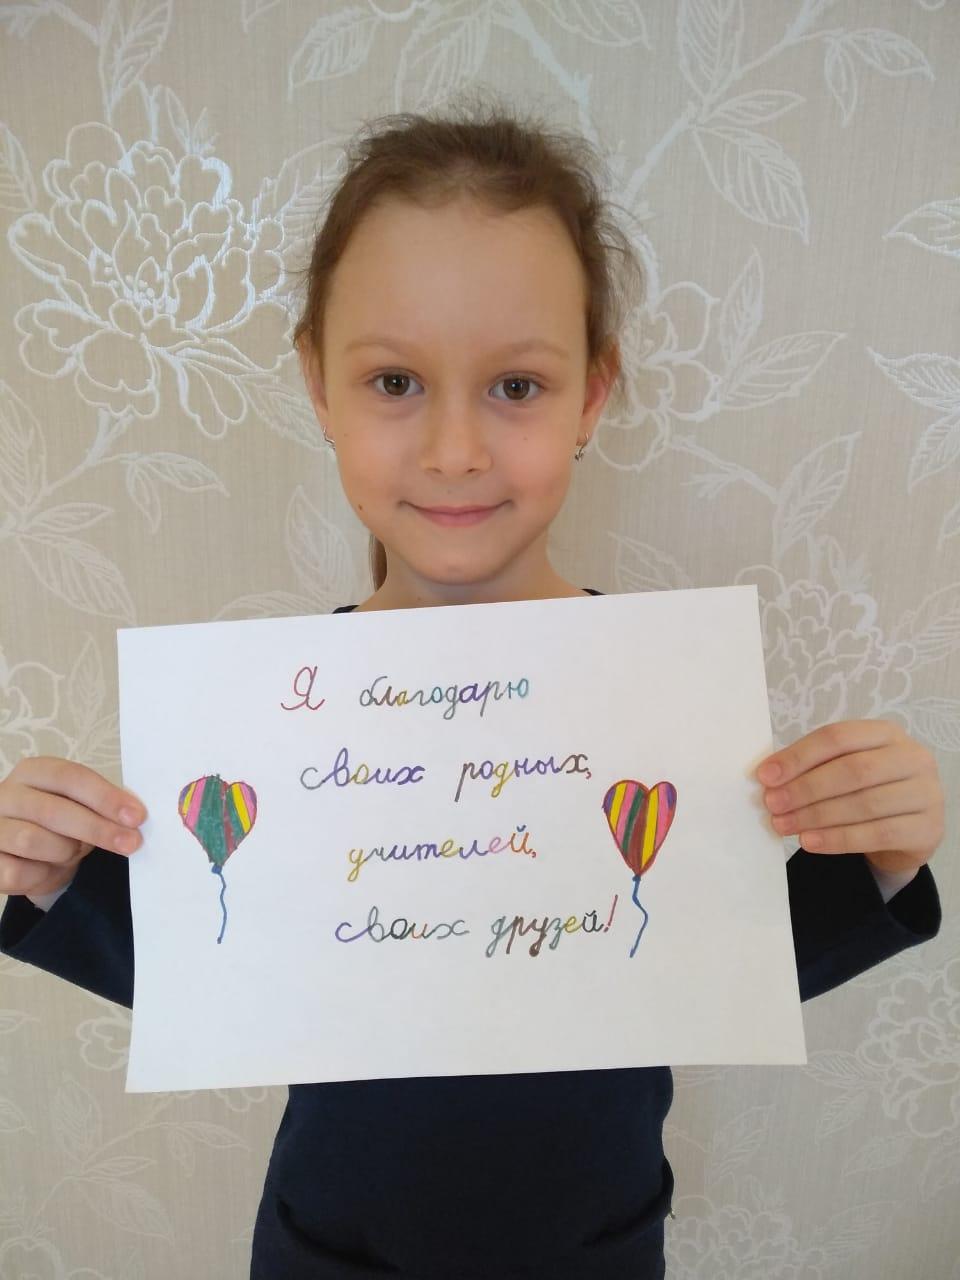 Я благодарю
своих родных,
учителей,
своих друзей!